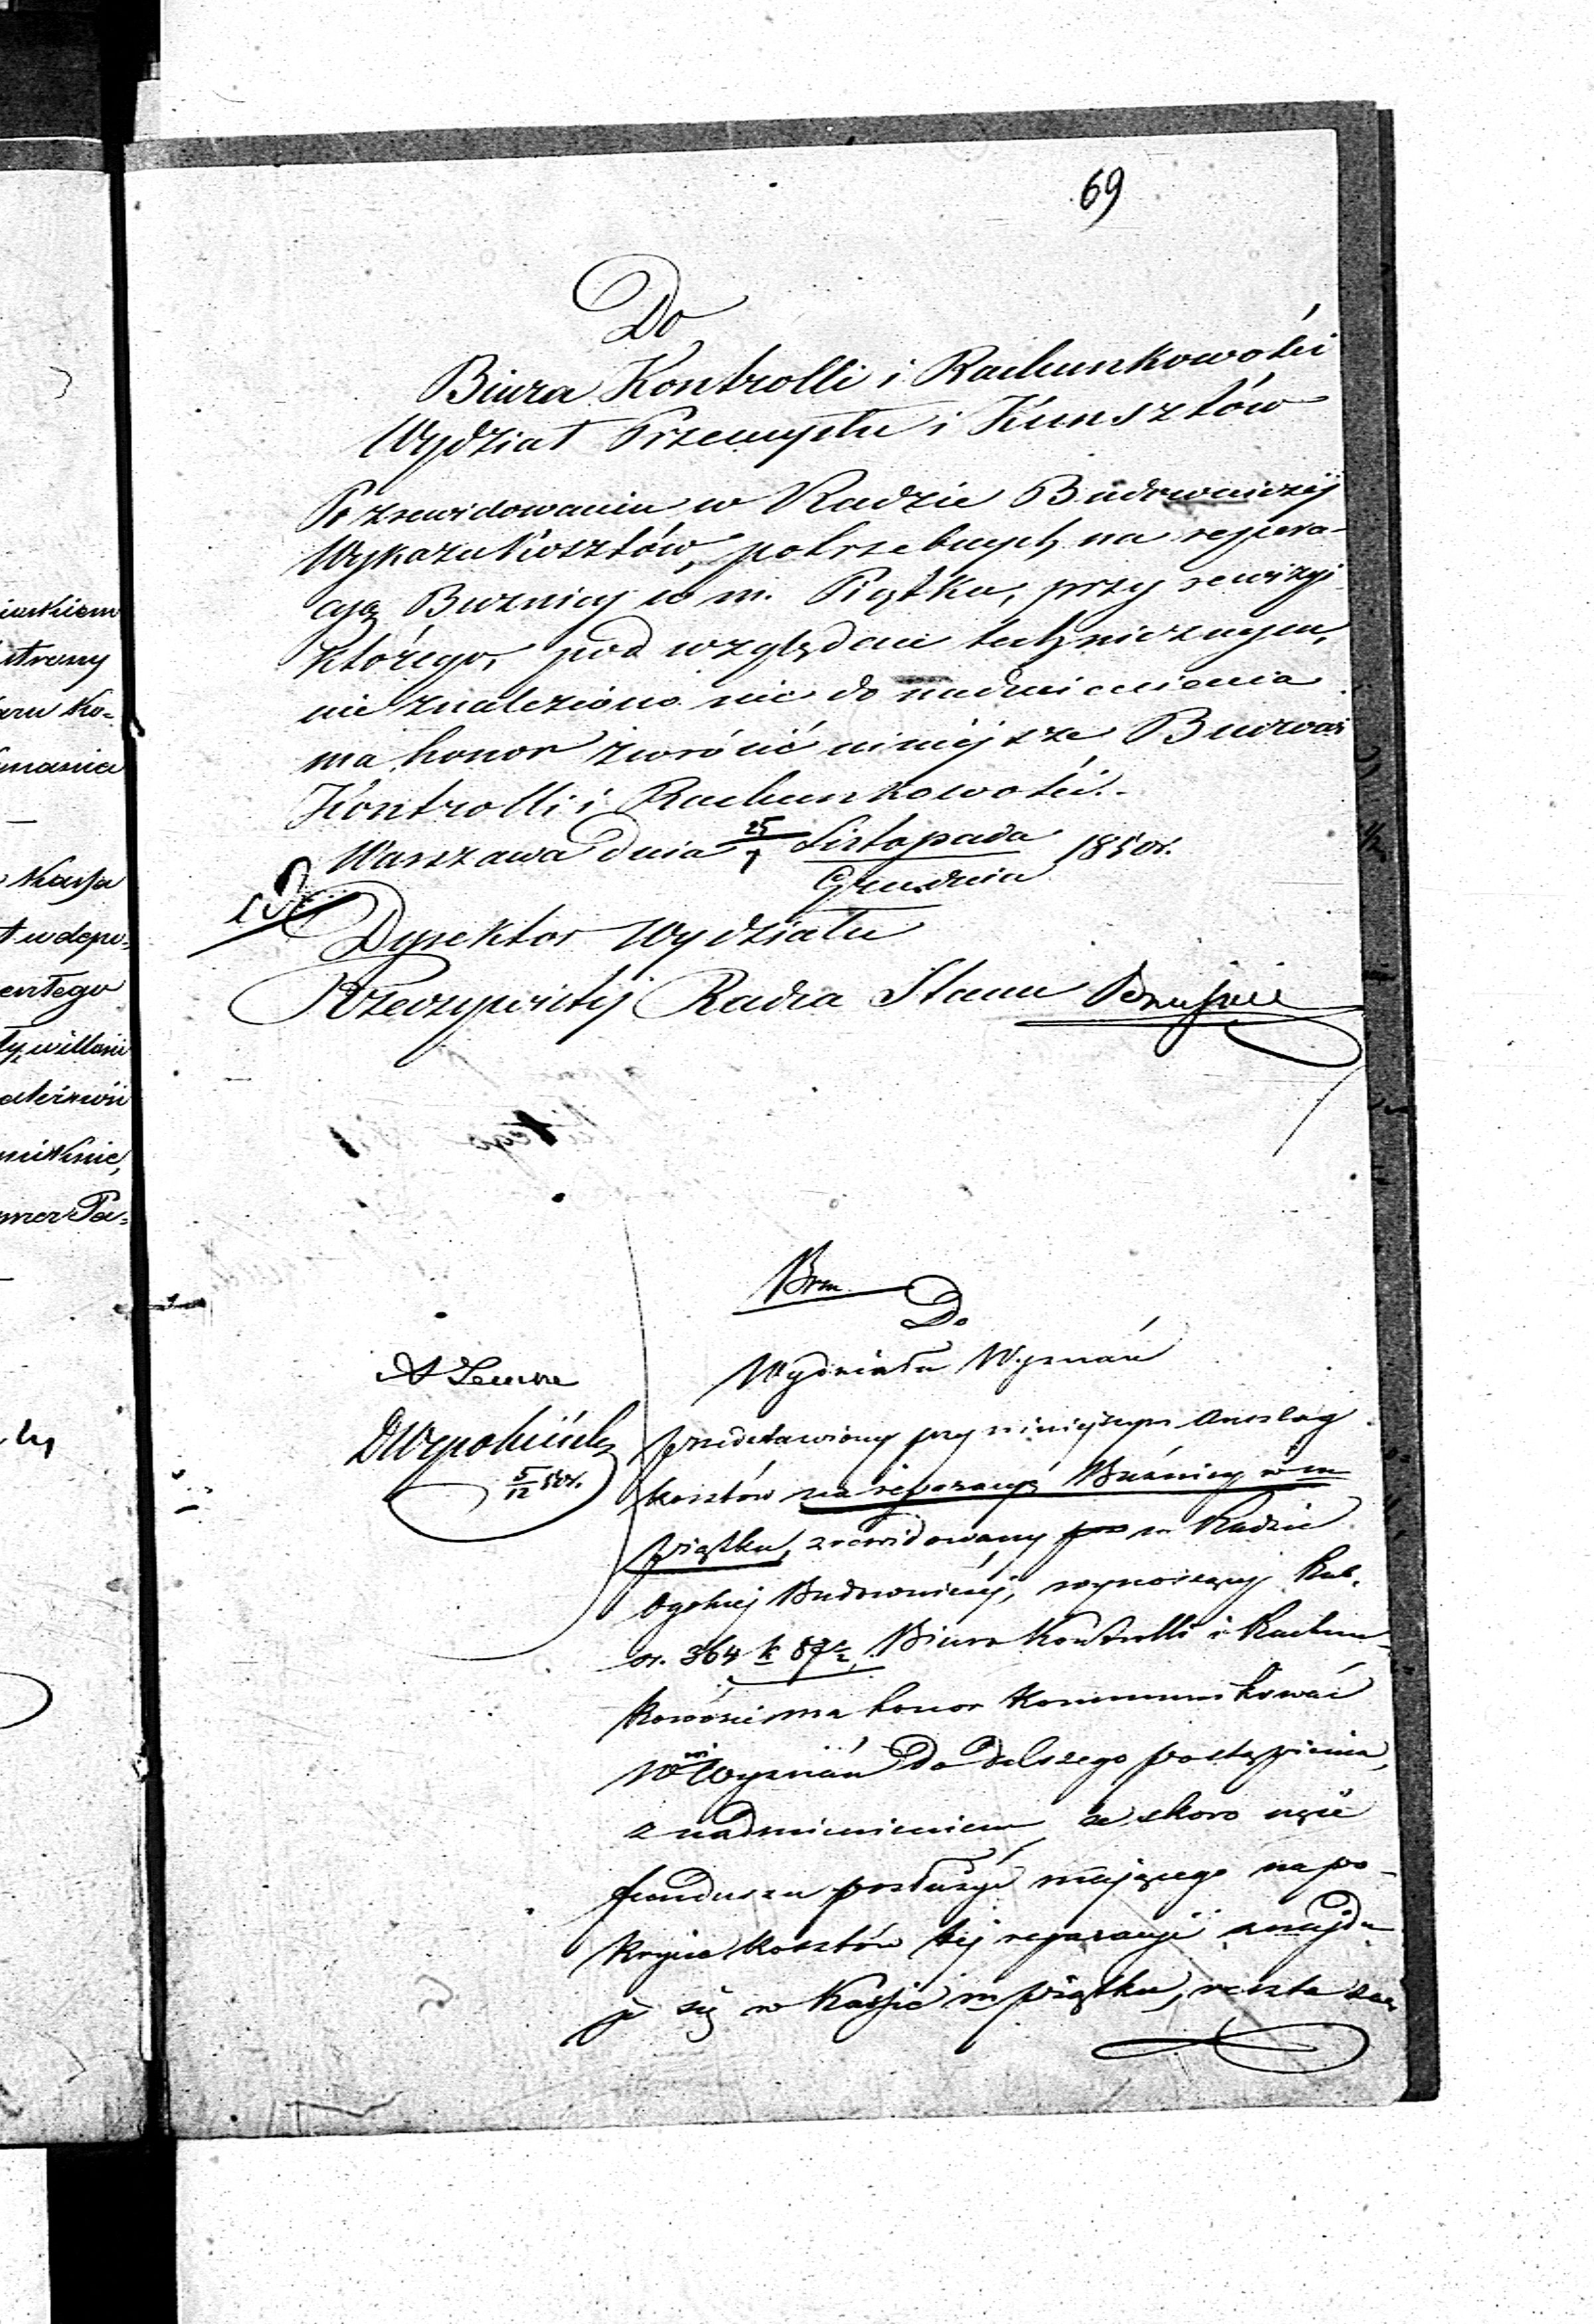 69
Do
Biura Kontrolli i Rachunkowości
Wydział Przemysłu i Kunsztów
Po zrewidowaniu w Radzie Budowniczéj
Wykazu Kosztów, potrzebnych na repera-
cyą Bużnicy w m. Piątku, przy rewizyi
którego, pod względem technicznym,
nie znaleziono nic do nadmienienia
ma honor zwrócić niniéjsze Biurowi
Kontrolli i Rachunkowości.
Warszawa dnia 25/7 Listopada/Grudnia 1850 r.
Dyrektor Wydziału
Rzeczywisty Radca Stanu
Brm.
Do
Wydziału Wyznań
przedstawiony przy niniejszym Anszlag
kosztów na reperacyą Bużnicy w m
Piątku, zrewidowany w Radzie
Ogólnej Budowniczej, wynoszący Rub.
sr. 364 k 87 1/2, Biuro Kontrolli i Rachun-
kowości ma honor kommunikować
Wwi Wyznań do dalszego postąpienia,
z nadmienieniem że skoro część
funduszu posłużyć mającego na po-
krycie kosztów tej reparacyi znajdu
je się w Kassie m Piątku, reszta zaś
5/12 50 r.
iaskiem
strony
aru Ko=
Kassa
t w depo=
Pa=